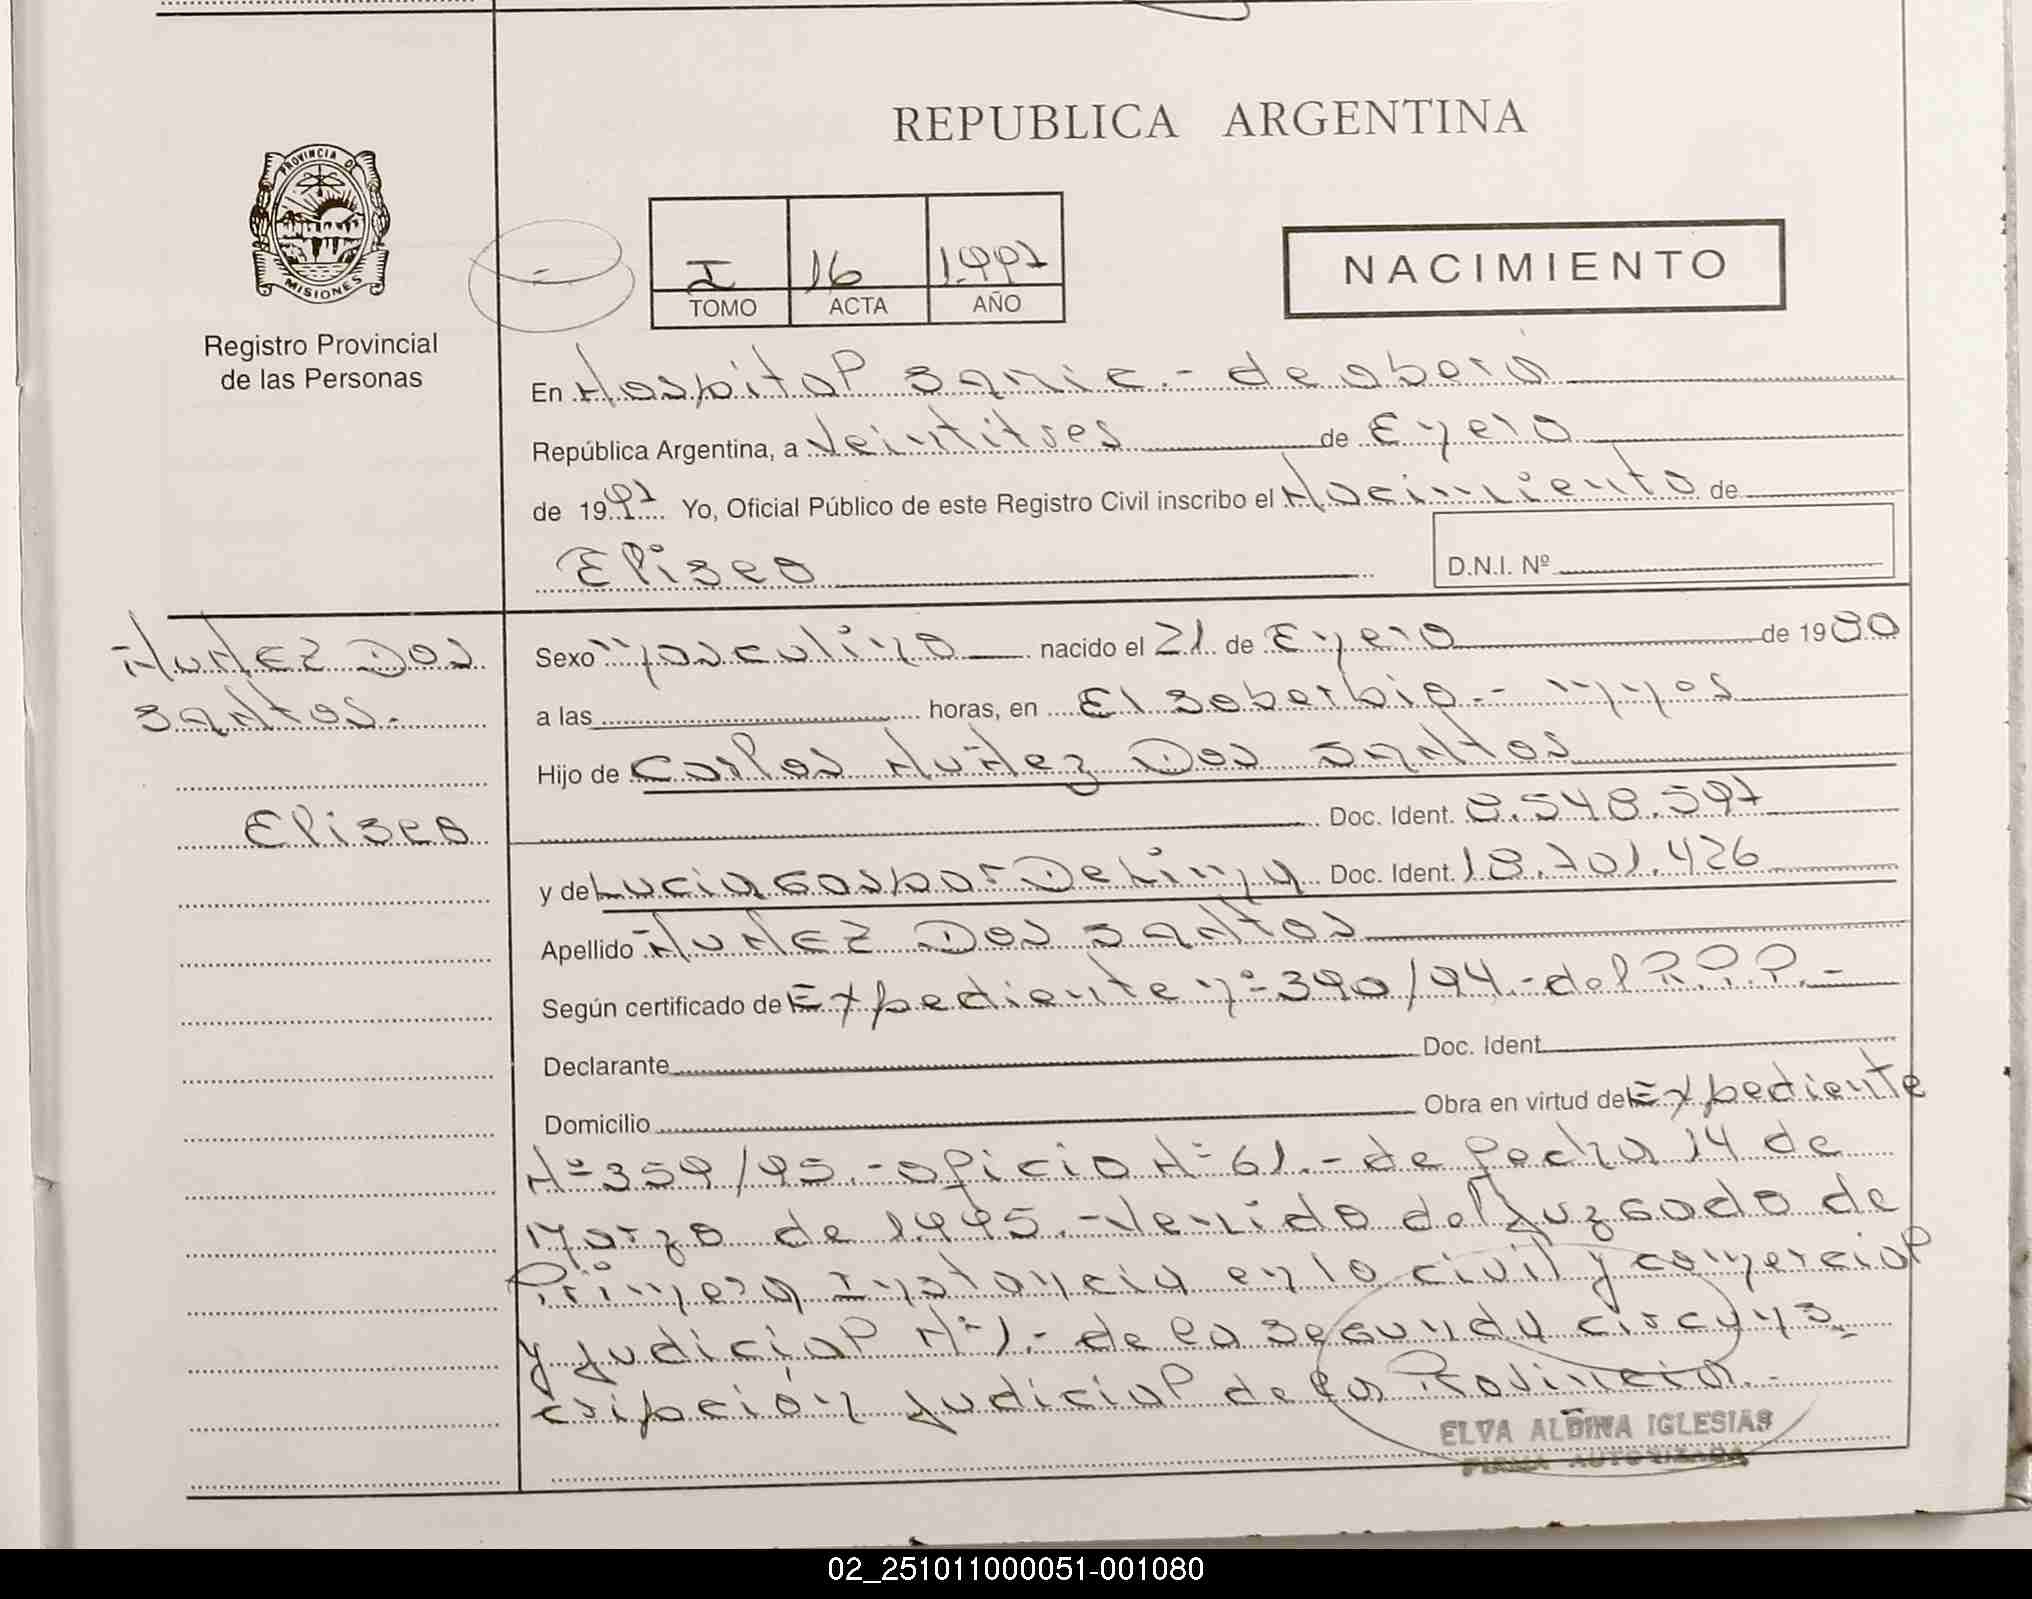 REPUBLICA ARGENTINA
PROVINCIA DE
MISIONES
Registro Provincial
de las Personas
I 16 1.997
TOMO ACTA AÑO
NACIMIENTO
En Hospital Samic.- de obera
República Argentina, a Veintitres de Enero
de 1997 Yo, Oficial Público de este Registro Civil inscribo el Nacimiento de
Eliseo
D.N.I. Nº
Nuñez Dos
Santos.-
Eliseo
Sexo Masculino nacido el 21 de Enero de 1980
a las horas, en El Soberbio.- Mnes
Hijo de Carlos Nuñez Dos Santos
Doc. Ident. 8.548.597
y de Lucia Gaspar De Lima Doc. Ident. 18.701.426
Apellido Nuñez Dos Santos
Según certificado de Expediente nº 390/94.- del R.P.P.-
Declarante Doc. Ident.
Domicilio Obra en virtud del Expediente
Nº 359/95.- oficio Nº 61.- de fecha 14 de
Marzo de 1.995.- Venido del Juzgado de
Primera Instancia en lo civil y comercial
y Judicial Nº 1.- de la Segunda circuns-
cripción Judicial de la Provincia.-
ELVA ALBINA IGLESIAS
FIRMA AUTORIZADA
02_251011000051-001080